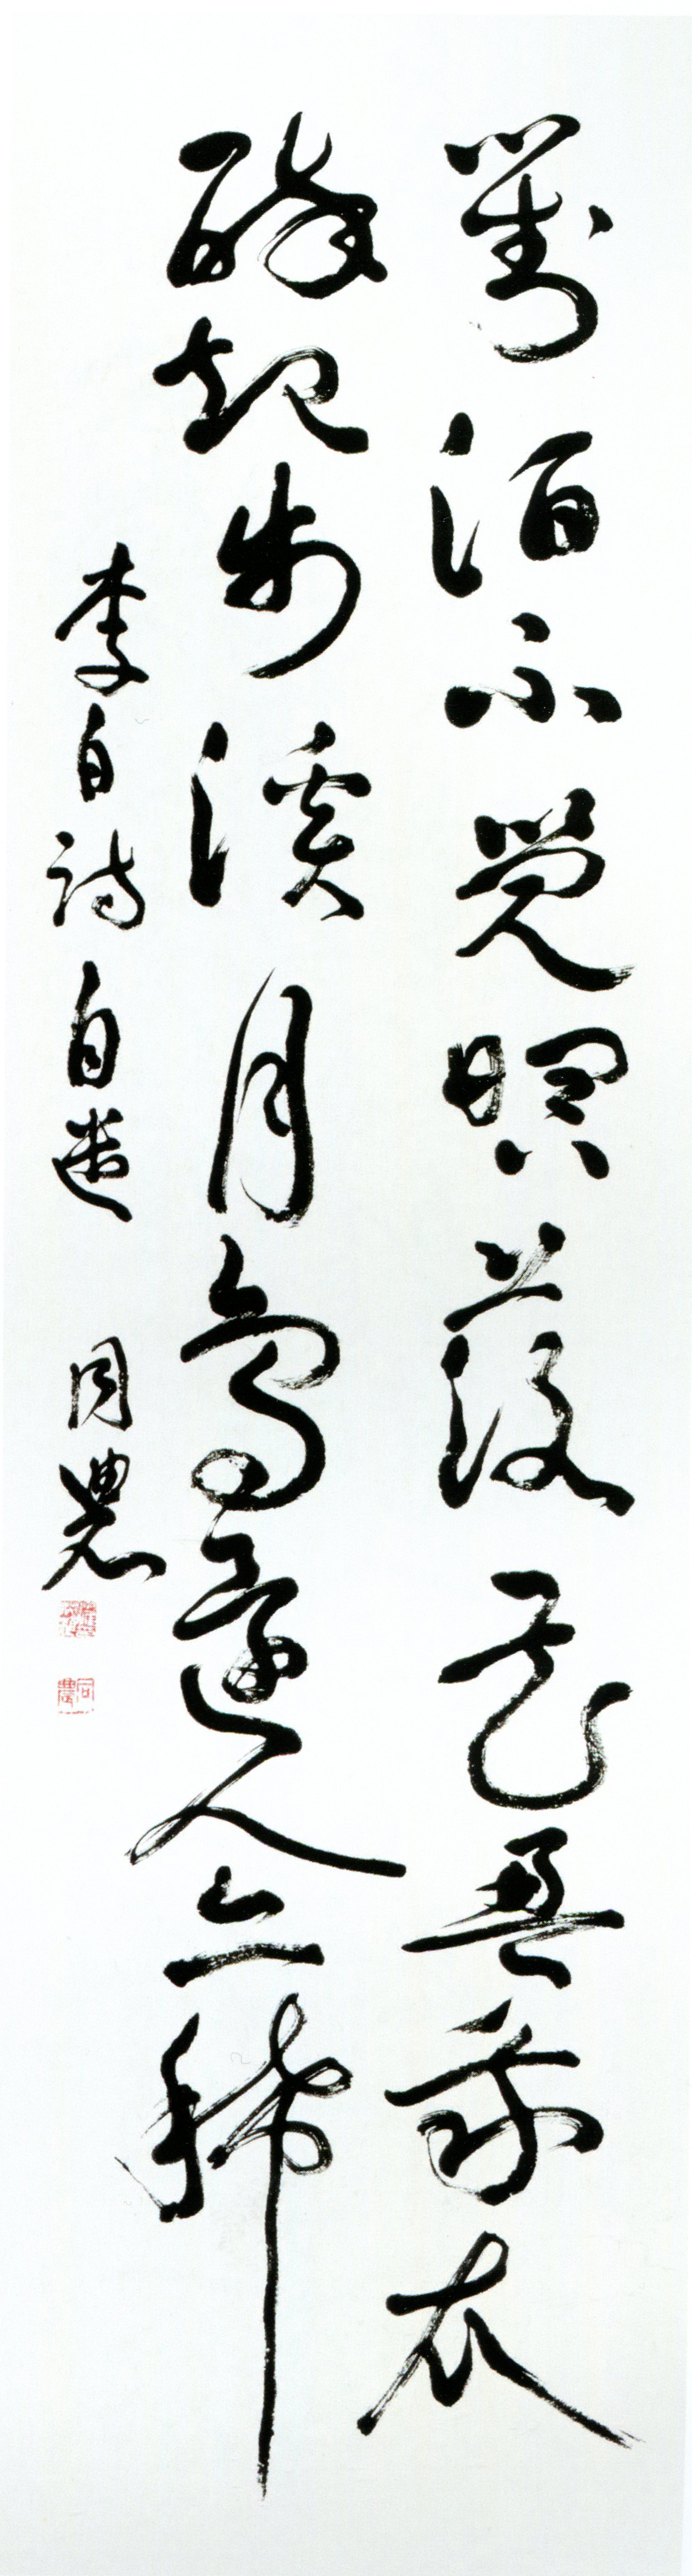 對酒不覺暝落花盈我衣
醉起步溪月鳥還人亦稀
李白詩自遣 同農